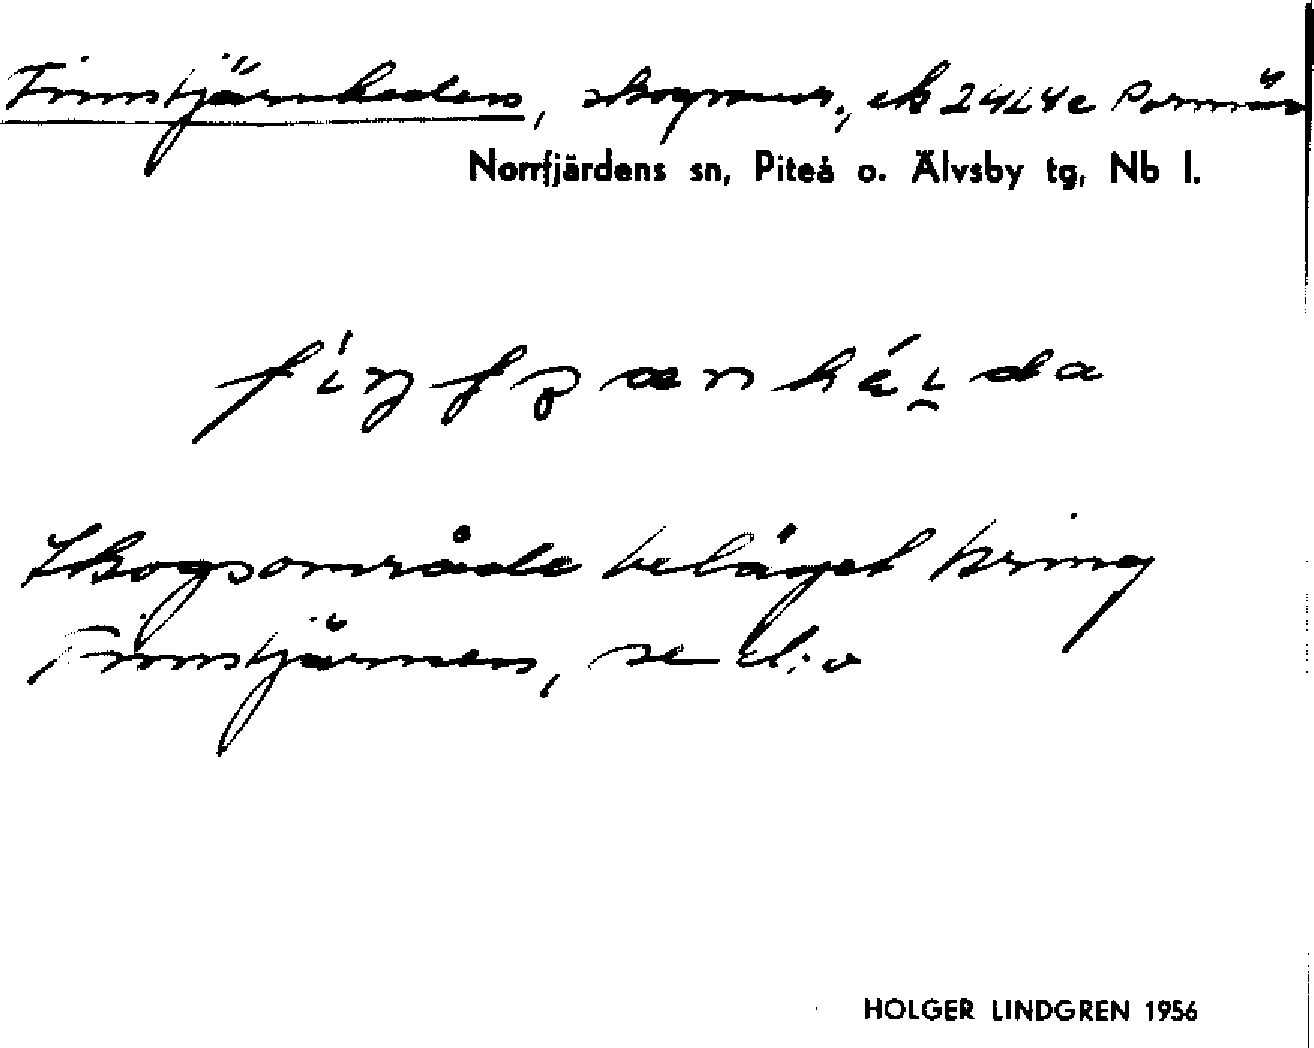 Finnstjärnheden, skogsomr., ek 24L4c Pormäs
Norrfjärdens sn, Piteå o. Älvsby tg, Nb l.
Skogsområde beläget kring
Finnstjärnen, se d:o
HOLGER LINDGREN 1956